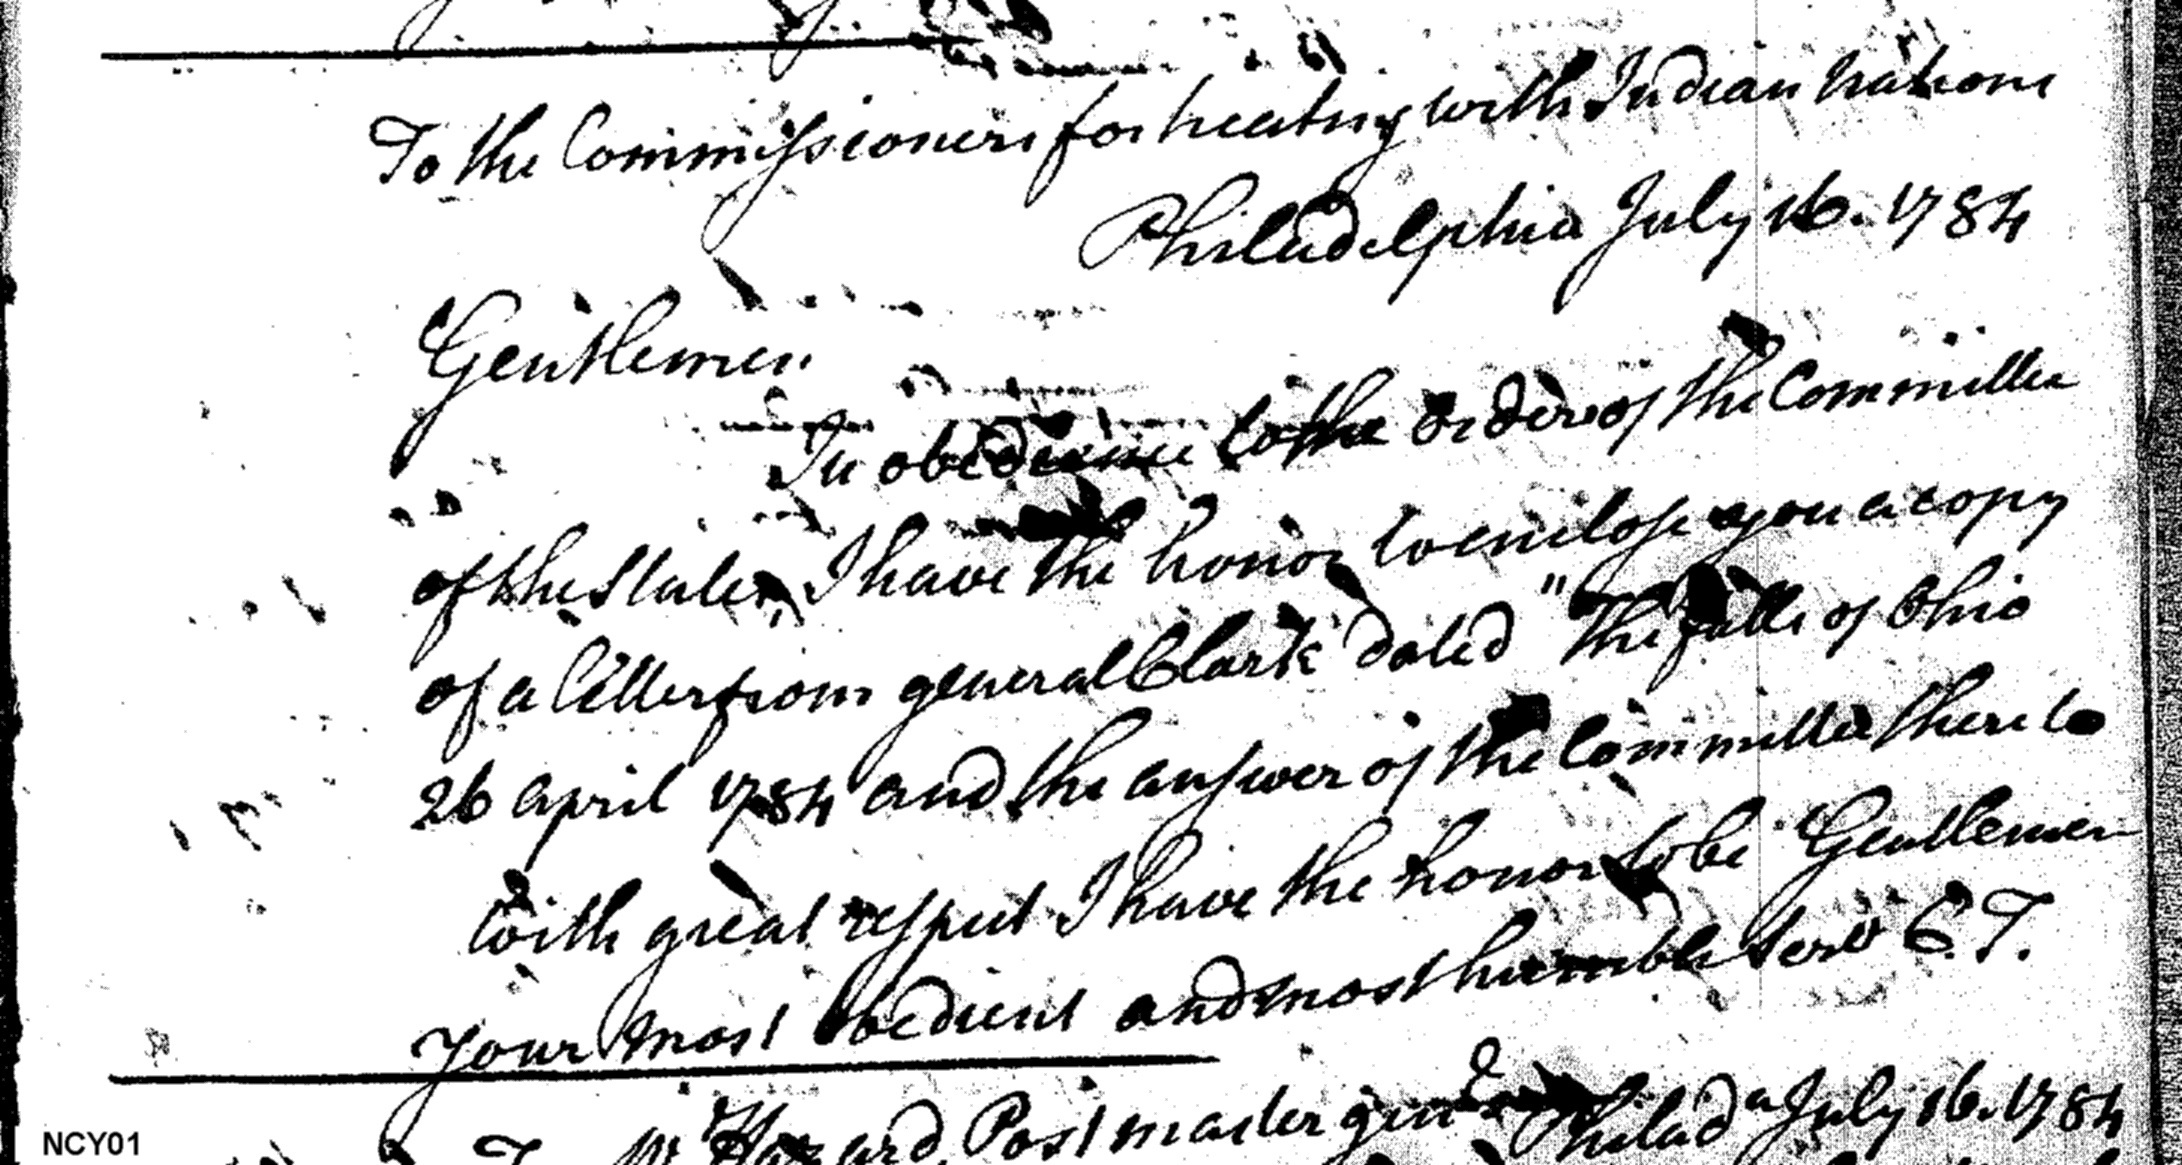 To the Commissioners for treating with Indian nations
Philadelphia July 16. 1784
Gentlemen
In obedience to the orders of the Committee
of the States, I have the honor to enclose you a copy
of a letter from general Clark dated "The falls of Ohio
26 april 1784 and the answer of the Committee thereto
With great respect I have the honor to be Gentlemen
Your most obedient and most humble Servt C. T.
To Mr Hazard, Post master genl Philada July 16. 1784
NCY01